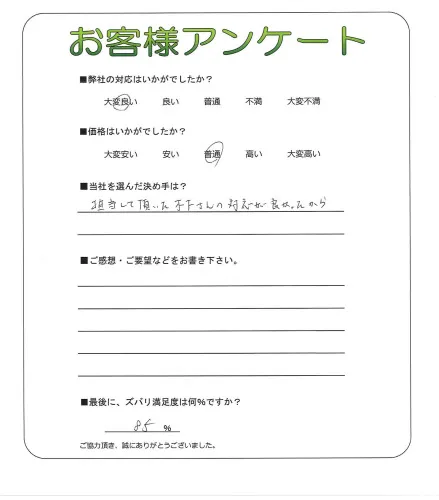 お客様アンケート
■弊社の対応はいかがでしたか？
大変良い 良い 普通 不満 大変不満
■価格はいかがでしたか？
大変安い 安い 普通 高い 大変高い
■当社を選んだ決め手は？
担当して頂いた木下さんの対応が良かったから
■ご感想・ご要望などをお書き下さい。
■最後に、ズバリ満足度は何％ですか？
85 %
ご協力頂き、誠にありがとうございました。